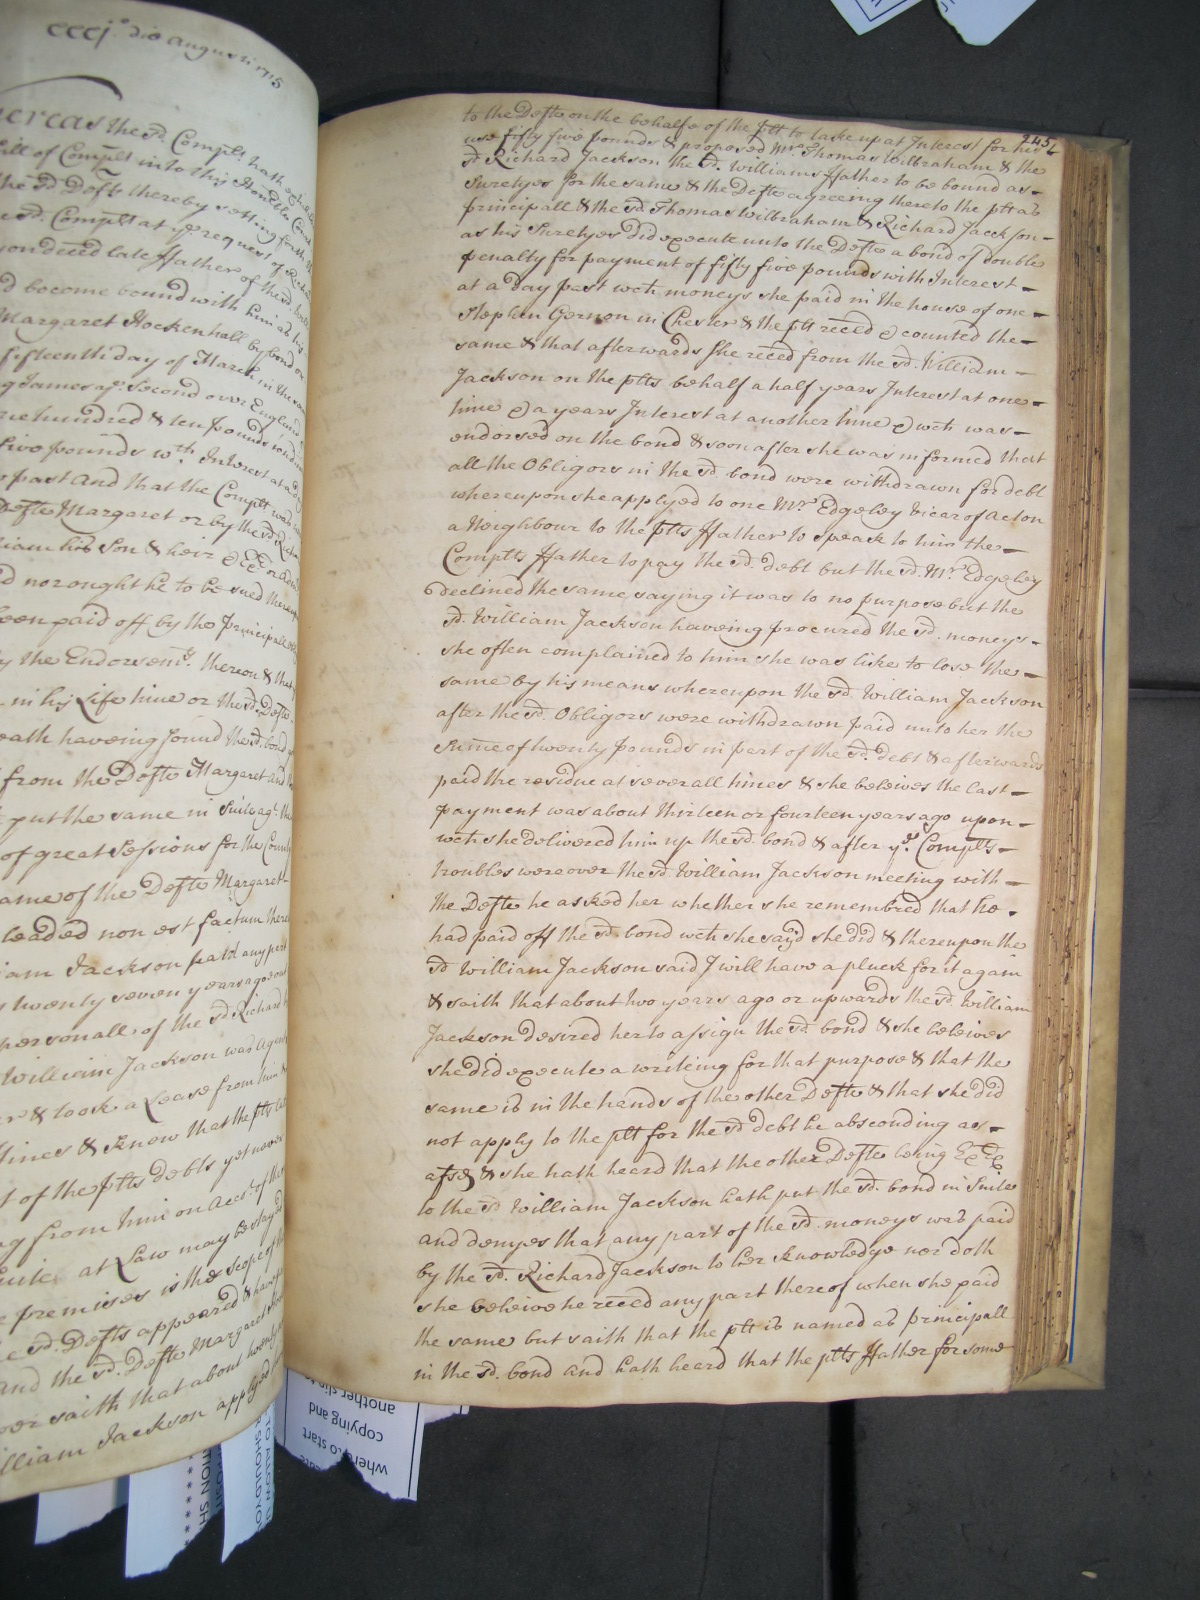 cccj.o die Augusti 1715
hereas the sd. Complt. hath exhibited
Bill of Complt into this Honble Court
the sd Defts thereby setting forth
sd. Complt at ye request of Richard
deced late ffather of the sd.
become bound with him as his
Margaret Hockenhall by bond
fifteenth day of March in the
James ye Second over England
one hundred & ten pounds
five pounds wth. Interest at a day
past And that the Complt was
Defte Margaret or by the sd Richard
William his Son & heir
nor ought he to be sued
been paid off by the Principall
by the Endorsemts. thereon & that
in his Life time or the sd. Defte
death haveing found the sd. bond
from the Defte Margaret
put the same in Suite agt. the
of great Sessions for the County
name of the Defte Margaret
pleaded non est factum
William Jackson paid any part
twenty seven years ago
personall of the sd Richard
William Jackson was Agent
& took a Lease from him
times & knew that the plts
of the plts debts yet never
from him on Acct. of the
Suite at Law may be stayed
premises is the Scope of
sd. Defts appeared &
and the sd. Defte Margaret
saith that about twenty
William Jackson applyed
245
to the Defte on the behalfe of the plt to take up at Interest for his
use fifty five pounds & proposed Mr. Thomas Wilbraham & the
sd Richard Jackson the sd. Williams ffather to be bound as
Suretyes for the same & the Defte agreeing thereto the plt as
principall & the sd Thomas Wilbraham & Richard Jackson
as his Suretyes did execute unto the Defte a bond of double
penalty for payment of fifty five pounds with Interest
at a day past wch moneys she paid in the house of one
Stephen Gernon in Chester & the plt reced & counted the
same & that afterwards she reced from the sd. William
Jackson on the plts behalf a half years Interest at one
time & a years Interest at another time & wch was
endorsed on the bond & soon after she was informed that
all the Obligors in the sd. bond were withdrawn for debt
whereupon she applyed to one Mr Edgeley Vicar of Acton
a Neighbour to the plts ffather to speak to him the
Complts ffather to pay the sd. debt but the sd. Mr. Edgeley
declined the same saying it was to no purpose but the
sd. William Jackson haveing procured the sd. moneys
she often complained to him she was like to lose the
same by his means whereupon the sd. William Jackson
after the sd. Obligors were withdrawn paid unto her the
sume of twenty pounds in part of the sd. debt & afterwards
paid the residue at severall times & she beleives the last
payment was about thirteen or fourteen years ago upon
wch she delivered him up the sd. bond & after ye. Complts
troubles were over the sd. William Jackson meeting with
the Defte he asked her whether she remembred that he
had paid off the sd. bond wch she sayd she did & thereupon the
sd William Jackson said I will have a pluck for it again
& saith that about two years ago or upwards the sd. William
Jackson desired her to assign the sd. bond & she beleives
she did execute a writeing for that purpose & that the
same is in the hands of the other Defte & that she did
not apply to the plt for the sd debt he absconding as
afsd & she hath heard that the other Defte being
to the sd William Jackson hath put the sd. bond in Suite
and denyes that any part of the sd. moneys was paid
by the sd. Richard Jackson to her knowledge nor doth
she beleive he reced any part thereof when she paid
the same but saith that the plt is named as principall
in the sd. bond and hath heard that the plts ffather for some
where to start
copying and
another slip